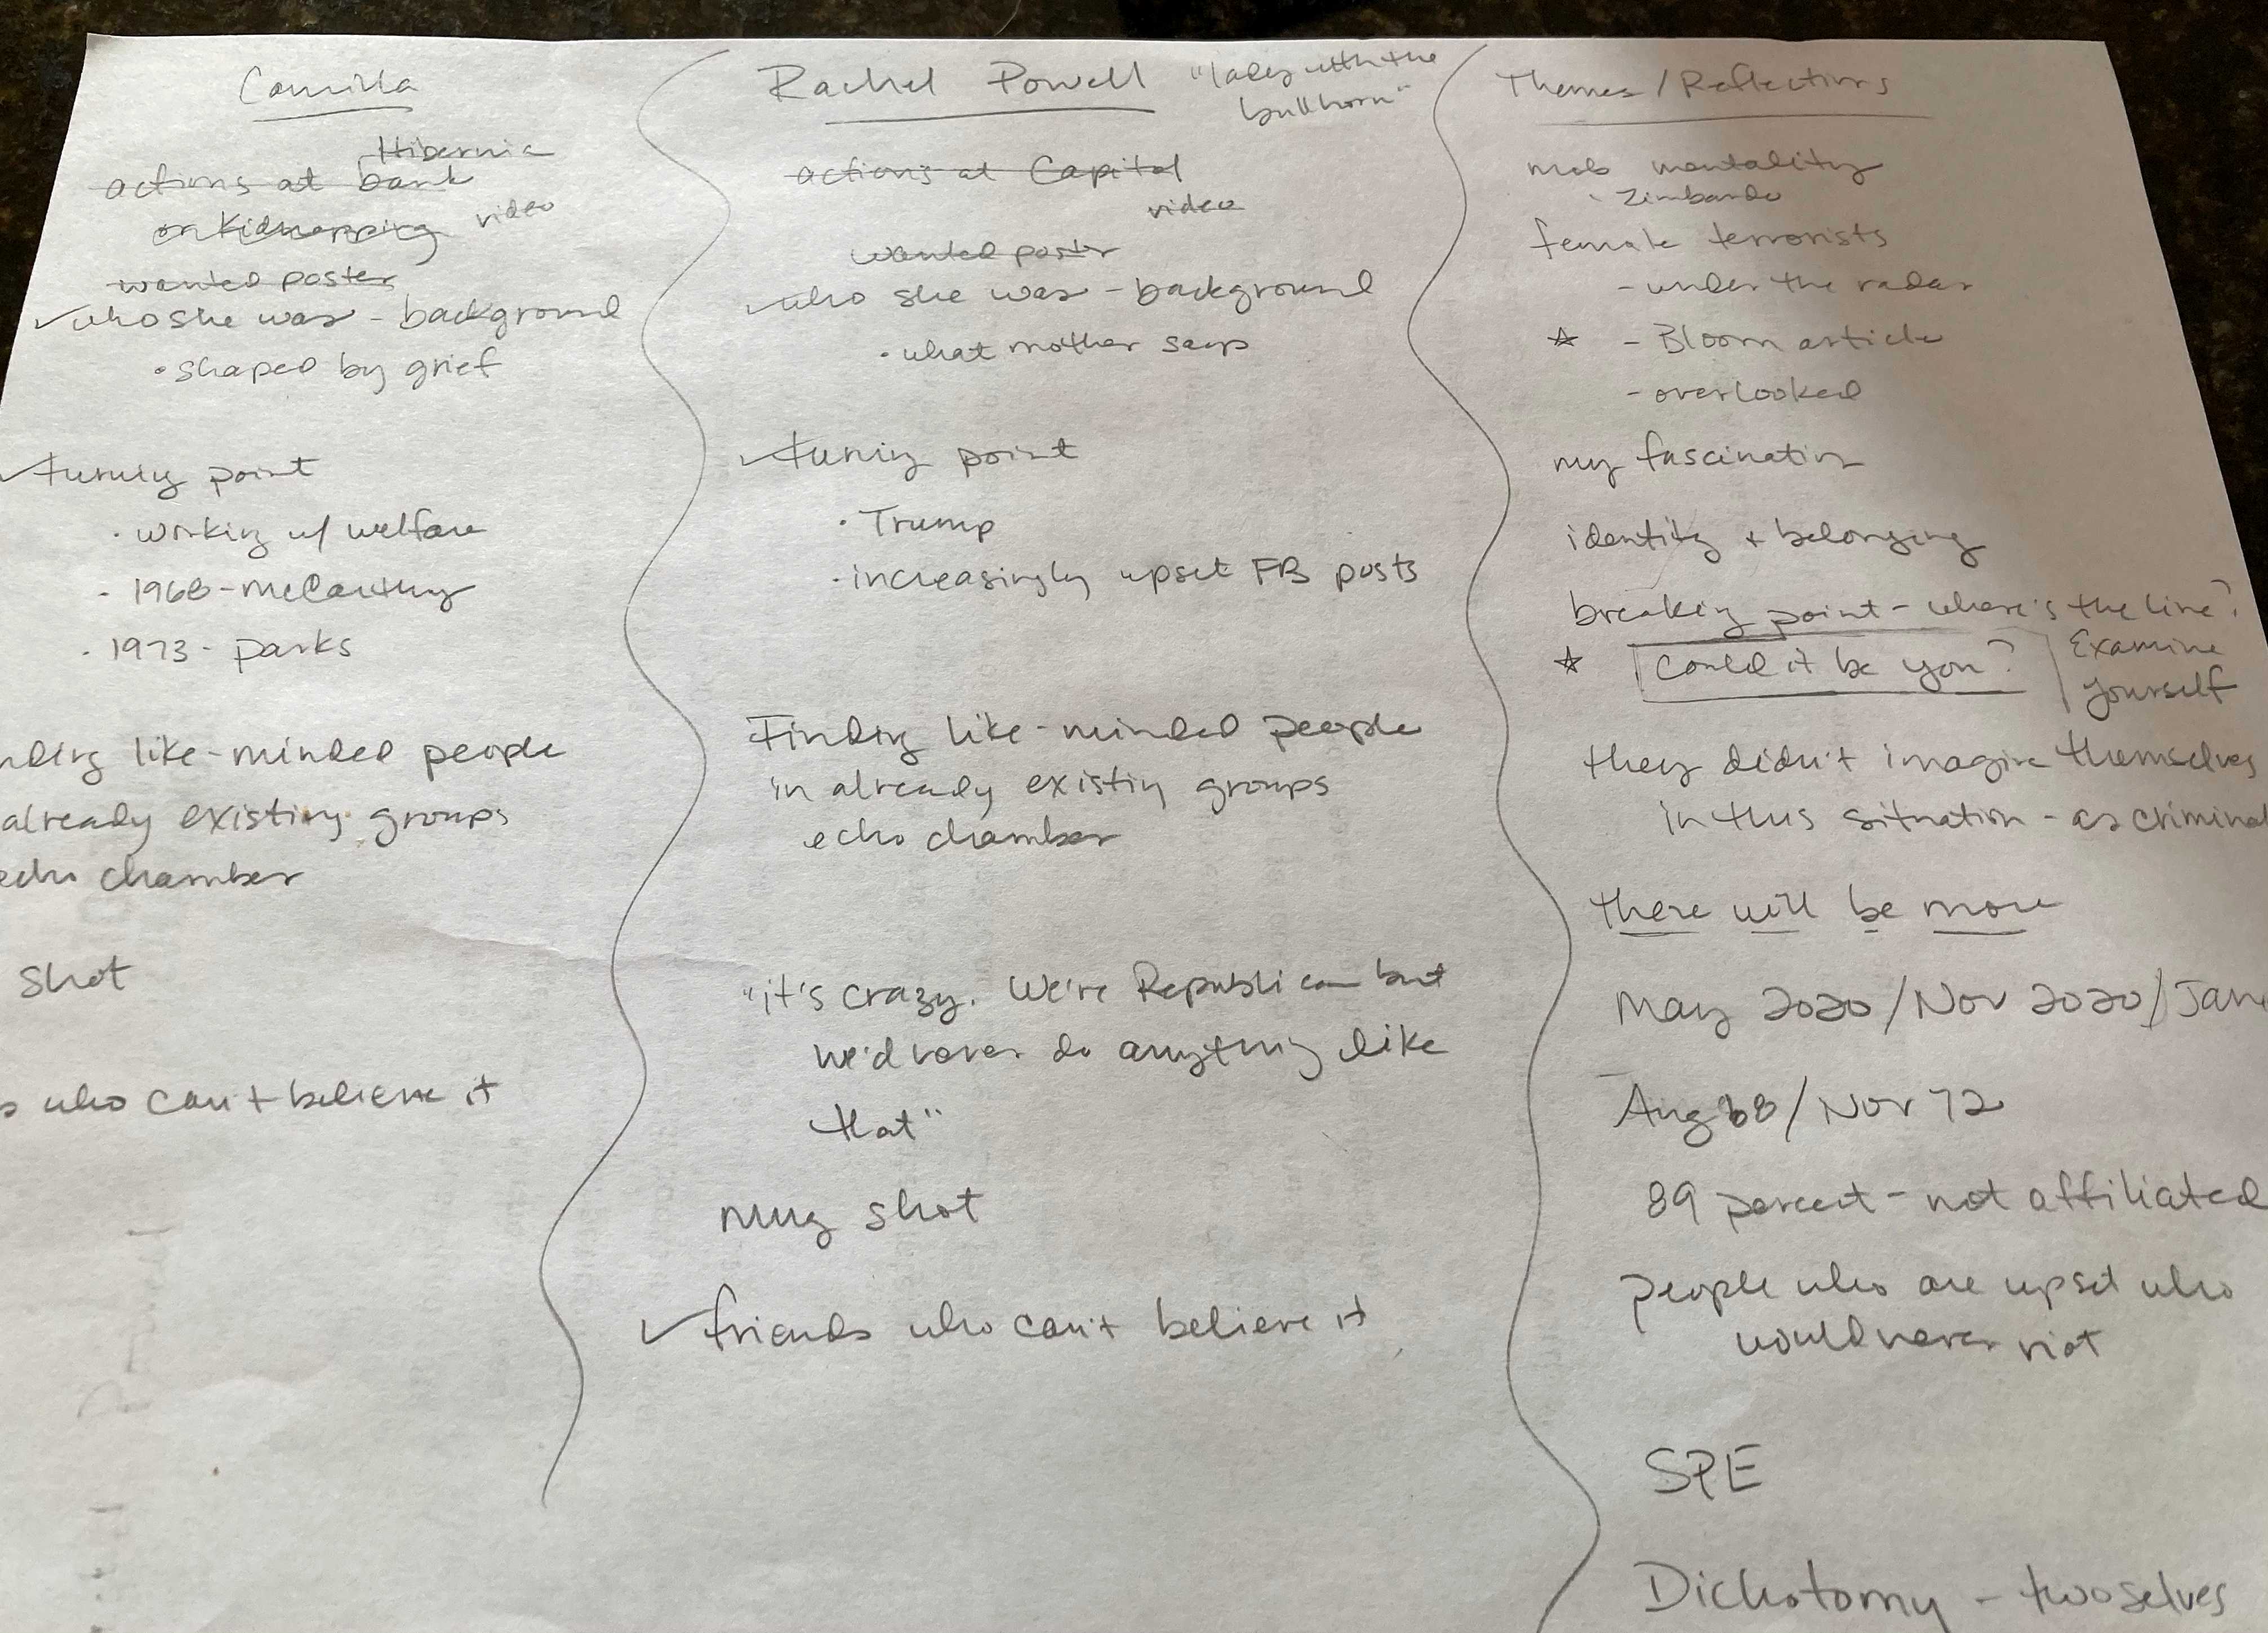 Camilla
Hibernia
actions at bank
or kidnapping video
wanted poster
who she was - background
• shaped by grief
turning point
• working w/ welfare
• 1968 - McCarthy
• 1973 - parks
nding like-minded people
already existing groups
echo chamber
shot
who can't believe it
Rachel Powell "lady with the
bullhorn"
actions at Capitol
video
wanted poster
who she was - background
• what mother says
turning point
• Trump
• increasingly upset FB posts
Finding like-minded people
in already existing groups
echo chamber
"it's crazy. We're Republican but
we'd never do anything like
that"
mug shot
friends who can't believe it
Themes / Reflections
mob mentality
• Zimbardo
female terrorists
- under the radar
☆ - Bloom article
- overlooked
my fascination
identity + belonging
breaking point - where's the line?
☆ Could it be you? Examine
yourself
they didn't imagine themselves
in this situation - as criminal
there will be more
May 2020 / Nov 2020 / Jan
Aug 68 / Nov 72
89 percent - not affiliated
people who are upset who
would never riot
SPE
Dichotomy - two selves